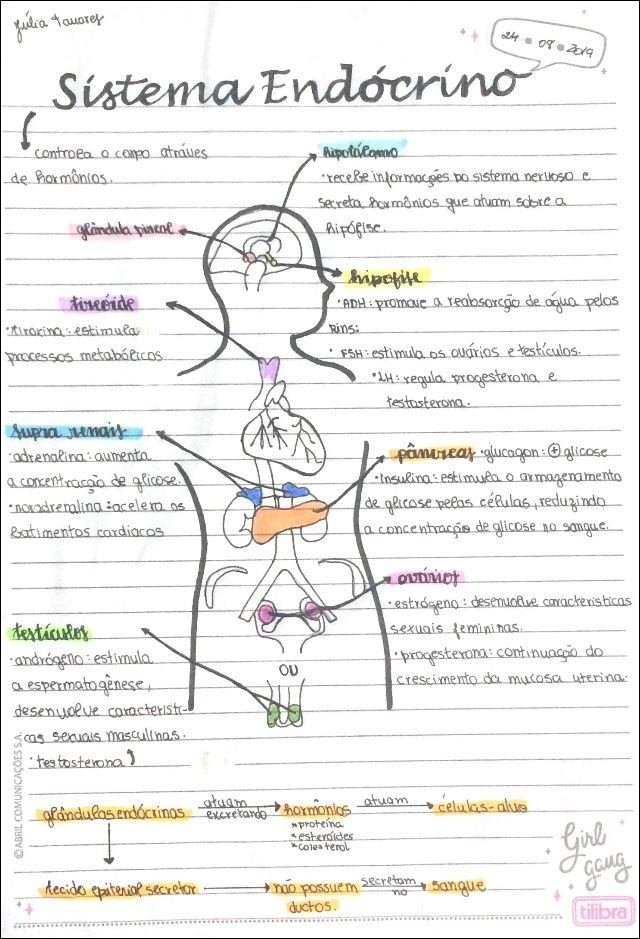 Júlia Tavares
24 • 09 • 2019
Sistema Endócrino
controla o corpo atráves
de hormônios.
hipotálamo
• recebe informações do sistema nervoso e
secreta hormônios que atuam sobre a
hipófise.
glândula pineal
hipófise
• ADH: promove a reabsorção de água pelos
Rins:
• FSH: estimula os ovários e testículos.
• LH: regula progesterona e
testosterona.
tireóide
• tiroxina: estimula
processos metabólicos
supra renais
• adrenalina: aumenta
a concentração de glicose.
• noradrenalina: acelera os
batimentos cardíacos
pâncreas • glucagon: + glicose
• Insulina: estimula o armazenamento
de glicose pelas células, reduzindo
a concentração de glicose no sangue.
ovários
• estrógeno: desenvolve características
sexuais femininas.
• progesterona: continuação do
crescimento da mucosa uterina.
testículos
• andrógeno: estimula
a espermatogênese,
desenvolve característi-
cas sexuais masculinas.
• testosterona
OU
glândulas endócrinas atuam excretando hormônios atuam células-alvo
*proteína
*esteróides
*colesterol
tecido epitelial secretor não possuem ductos. secretam no sangue
©ABRIL COMUNICAÇÕES S.A.
Girl
gang
tilibra